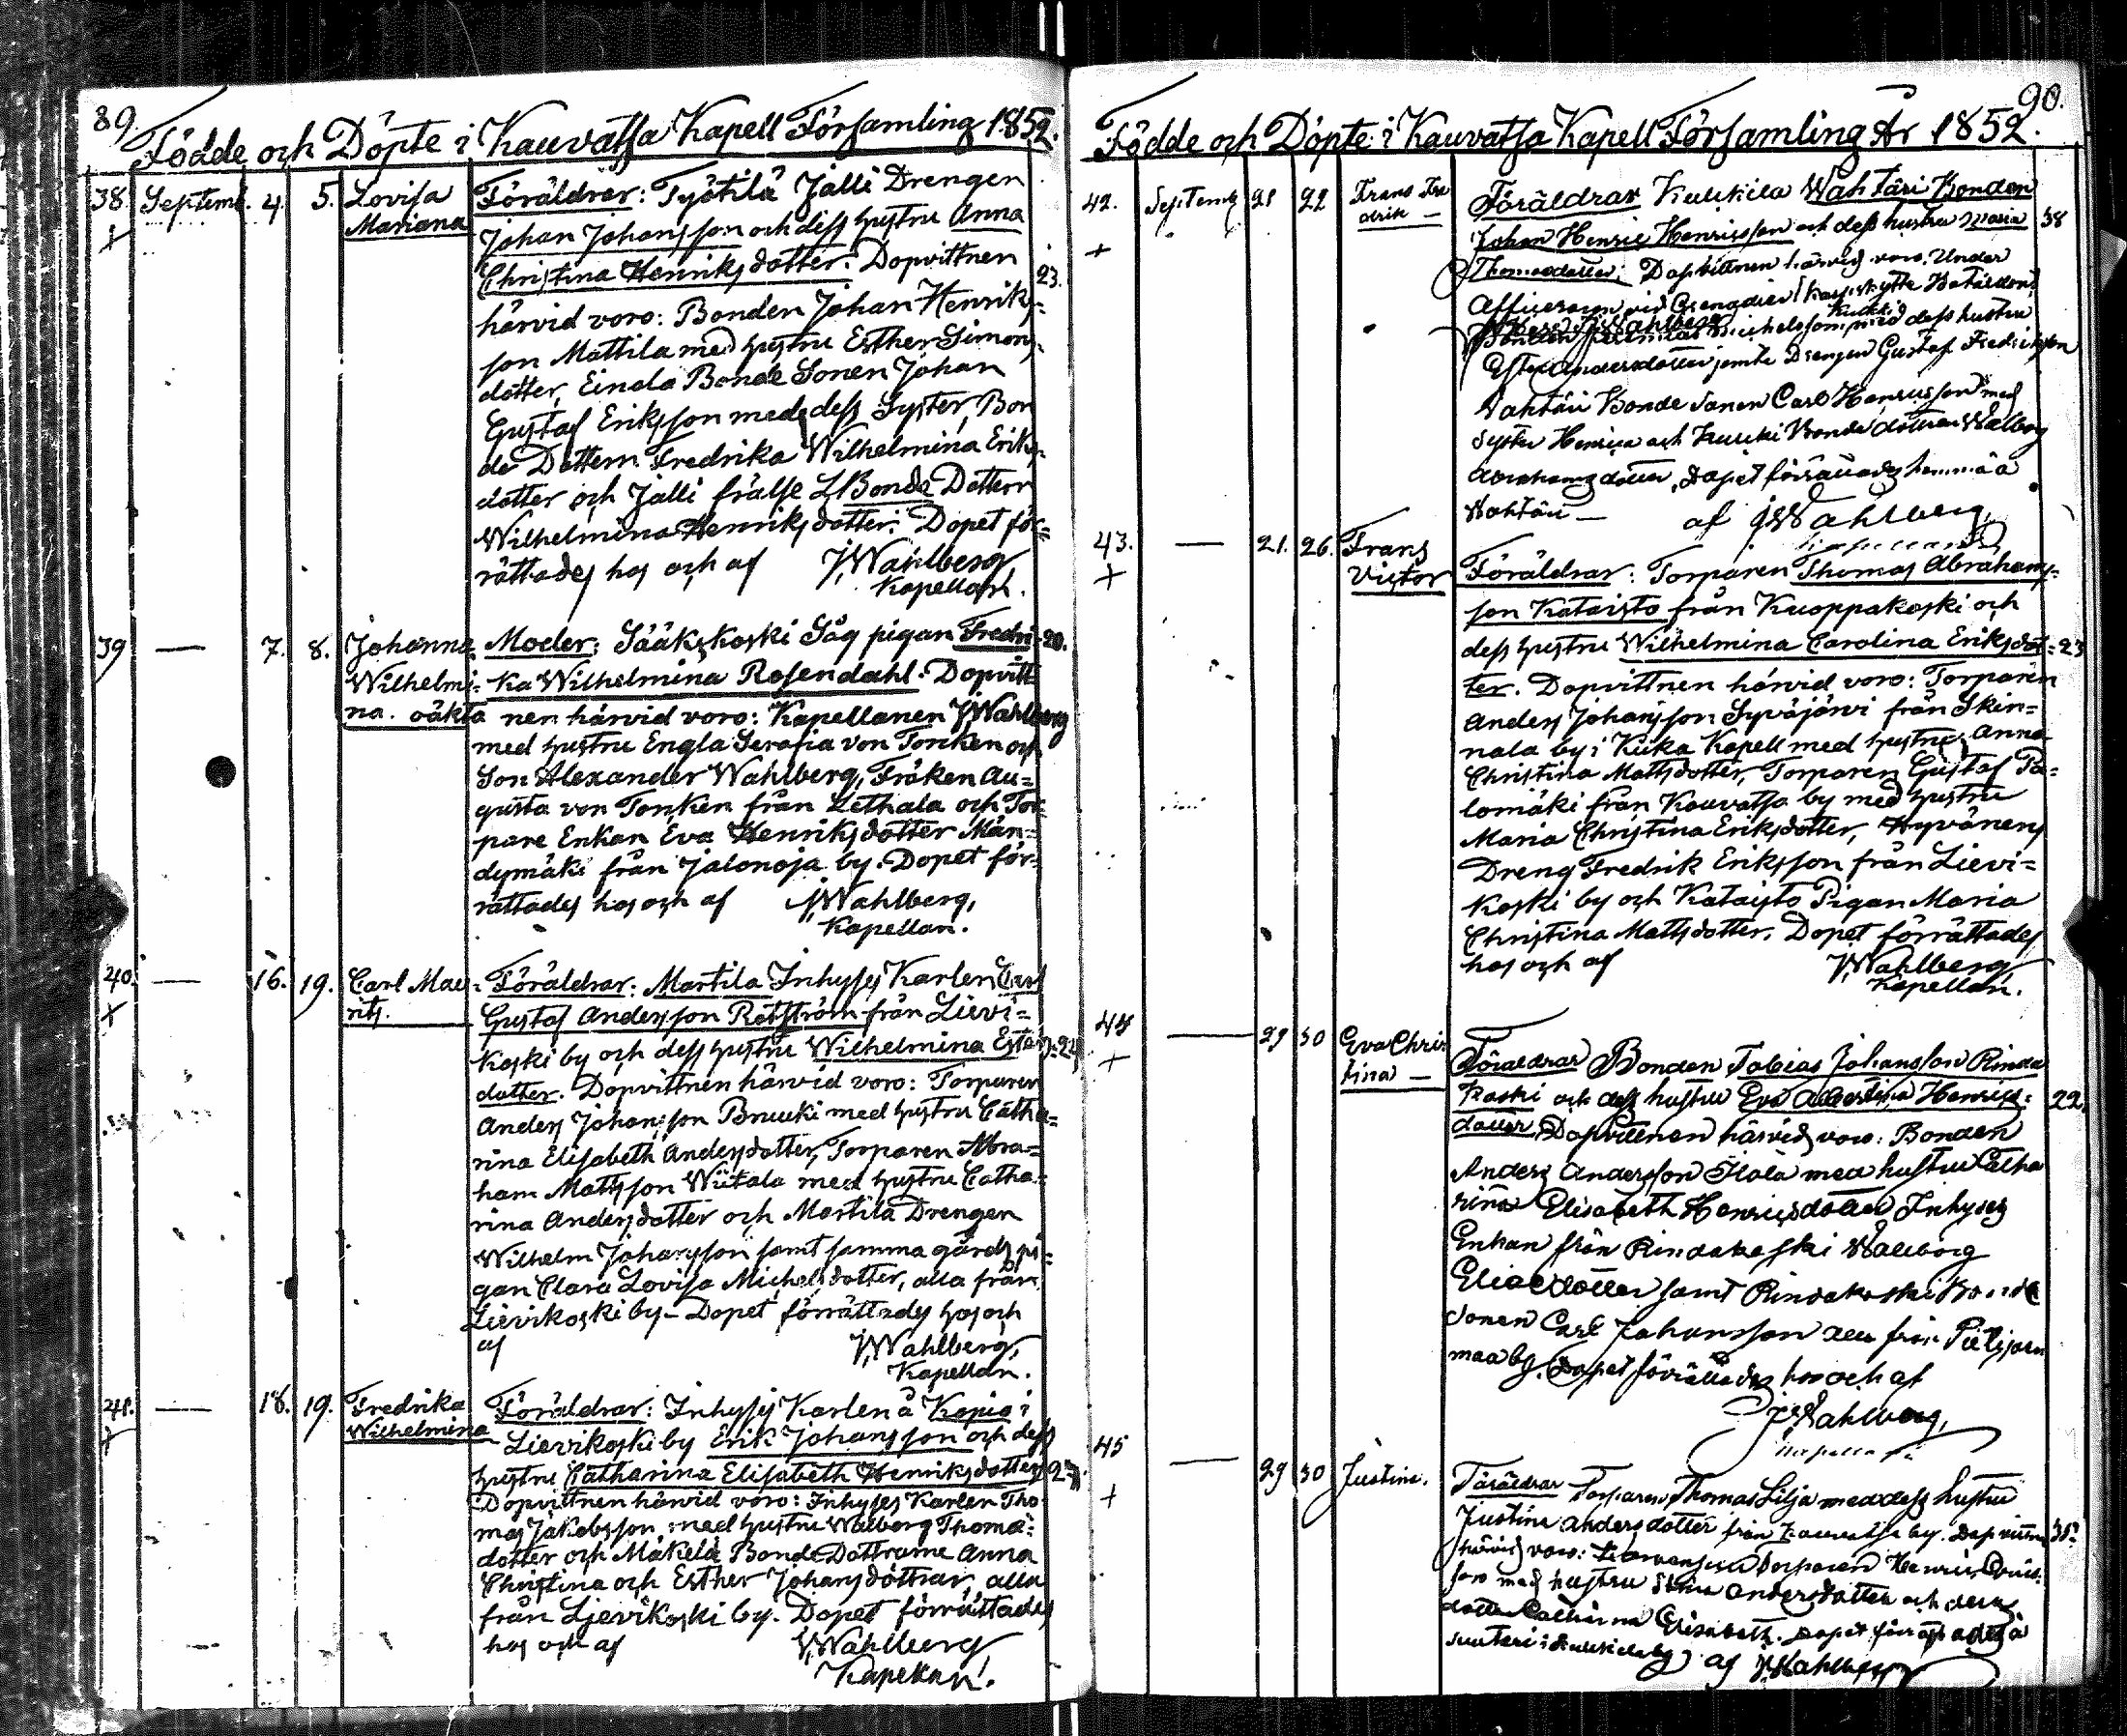 89.
Födde och Döpte i Kauvatsa Kapell Församling 1852.
38. Septemb. 4. 5. Lovisa Mariana
Föräldrar: Työtilä Jalli Drengen
Johan Johansson och dess hustru Anna
Christina Henriksdotter. Dopvittnen 23.
härvid voro: Bonden Johan Henriks-
son Mattila med hustru Esther Simons-
dotter, Einola Bonde Sonen Johan
Gustaf Eriksson med dess Syster, Bon
de Dottern Fredrika Wilhelmina Eriks-
dotter och Jalli frälse Bonde Dottern
Wilhelmina Henriksdotter. Dopet för-
rättades hos och af JWahlberg
Kapellan.
39 — 7. 8. Johanna Wilhelmi-na. oäkta
Moder: Sääkskoski Såg pigan Fredri- 20.
ka Wilhelmina Rosendahl. Dopvitt
nen härvid voro: Kapellanen JWahlberg
med hustru Engla Serafia von Torcken och
Son Alexander Wahlberg, Fröken Au-
gusta von Torcken från Lethala och Tor-
pare Enkan Eva Henriksdotter Män-
dymäki från Jalonoja by. Dopet för-
rättades hos och af JWahlberg,
Kapellan.
40. — 16. 19. Carl Mau-ritz.
Föräldrar: Martila Inhyses Karlen Carl
Gustaf Andersson Rotström från Lievi-
koski by och dess hustru Wilhelmina Esters- 22
dotter. Dopvittnen härvid voro: Torparen
Anders Johansson Bruuki med hustru Catha-
rina Elisabeth Andersdotter, Torparen Abra-
ham Mattsson Wiitala med hustru Catha-
rina Andersdotter och Martila Drengen
Wilhelm Johansson samt samma gårds pi-
gan Clara Lovisa Michelsdotter, alla från
Lievikoski by - Dopet förrättades hos och
af JWahlberg,
Kapellan.
41. — 18. 19. Fredrika Wilhelmina
Föräldrar: Inhyses Karlen å Kopio i
Lievikoski by Erik Johansson och dess
hustru Catharina Elisabeth Henriksdotter 27.
Dopvittnen härvid voro: Inhyses Karlen Tho
mas Jakobsson med hustru Walborg Thomæ-
dotter och Mäkelä Bonde Dottrarne Anna
Christina och Esther Johansdöttrar, alla
från Ljevikoski by. Dopet förrättades
hos och af JWahlberg
Kapellan.
90.
Födde och Döpte i Kauvatsa Kapell Församling År 1852.
42. Septemb 21 22 Frans Fredrik —
Föräldrar Kulkila Wahtäri Bonden
Johan Henric Henricsson och dess hustru Maria 38
Thomædotter. Dopvittnen härvid voro. Under
Afficeraren vid Grenadier Skarpskytte Bataillon
Bonden Michelsson med dess hustru
Ester Andersdotter jemte Drengen Gustaf Fredriksson
Wahtäri Bonde Sonen Carl Henricsson med
Syster Henrica och Bonde dottren Walborg
Abrahamsdotter, Dopet förrättades hemma å
Wahtäri — af JWahlberg,
Kapellan
43. — 21. 26. Frans Victor
Föräldrar: Torparen Thomas Abrahams-
son Kataisto från Kuoppakoski och
dess hustru Wilhelmina Carolina Eriksdot- 23
ter. Dopvittnen härvid voro: Torparen
Anders Johansson Syväjärvi från Skin-
nala by i Kiika Kapell med hustru Anna
Christina Mattsdotter, Torparen Gustaf Pa-
lomäki från Kauvatsa by med hustru
Maria Christina Eriksdotter, Hyvänens
Dreng Fredrik Eriksson från Lievi-
koski by och Kataisto Pigan Maria
Christina Mattsdotter. Dopet förrättades
hos och af JWahlberg
Kapellan.
44 — 29 30 Eva Chris tina —
Föräldrar Bonden Tobias Johansson Rinda
koski och dess hustru Eva Albertina Henrics- 22.
dotter Dopvittnen härvid voro: Bonden
Anders Andersson Ilola med hustru Catha
rina Elisabeth Henricsdotter Inhyses
Enkan från Rindakoski Walborg
Eliædotter samt Rindakoski Bonde
Sonen Carl Johansson från
maa by. Dopet förrättades hos och af
JWahlberg,
Kapellan
45 — 29 30 Justina.
Föräldrar Torparen Thomas Lilja med dess hustru
Justina Andersdotter från Kauvatsa by. Dopvittnen 35
härvid voro: Torparen Henric
son med hustru Stina Andersdotter och deras
dotter Catharina Elisabeth. Dopet förrättades å
Suutari i Kulkila by af JWahlberg